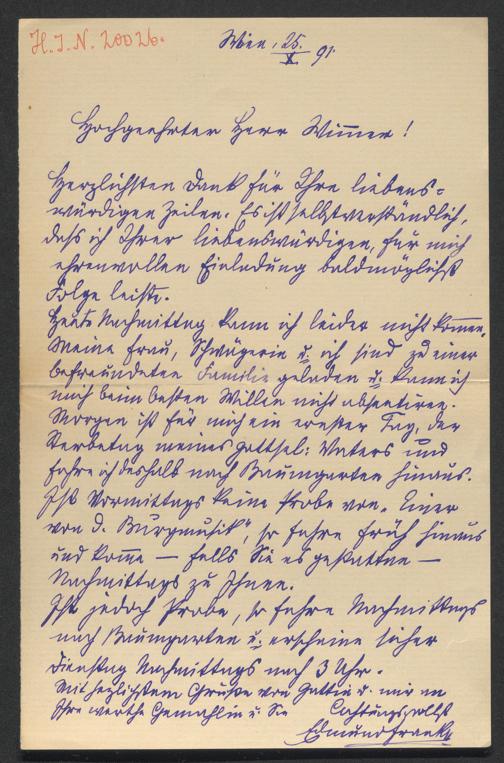 H.I.N. 20026.
Wien, 25./X. 91.
Hochgeehrter Herr Wimmer!
Herzlichsten Dank für Ihre liebens=
würdigen Zeilen. Es ist selbstverständlich,
dass ich Ihrer liebenswürdigen, für mich
ehrenvollen Einladung baldmöglichst
Folge leiste.
Heute Nachmittag kann ich leider nicht kom̄en.
Meine Frau, Schwägerin u. ich sind zu einer
befreundeten Familie geladen u. kann ich
mich beim besten Willen nicht absentiren.
Morgen ist für mich ein ernster Tag, der
Sterbetag meines gottsel: Vaters und
fahre ich deshalb nach Baumgarten hinaus.
Ist Vormittags keine Probe von „Einer
von d. Burgmusik", so fahre früh hinaus
und kom̄e — falls Sie es gestatten —
Nachmittags zu Ihnen.
Ist jedoch Probe, so fahre Nachmittags
nach Baumgarten u. erscheine sicher
Dienstag Nachmittags nach 3 Uhr.
Mit herzlichstem Grusse von Gattin u. mir an
Ihre werthe Gemahlin u. Sie
Achtungsvollst
Edmund Frank